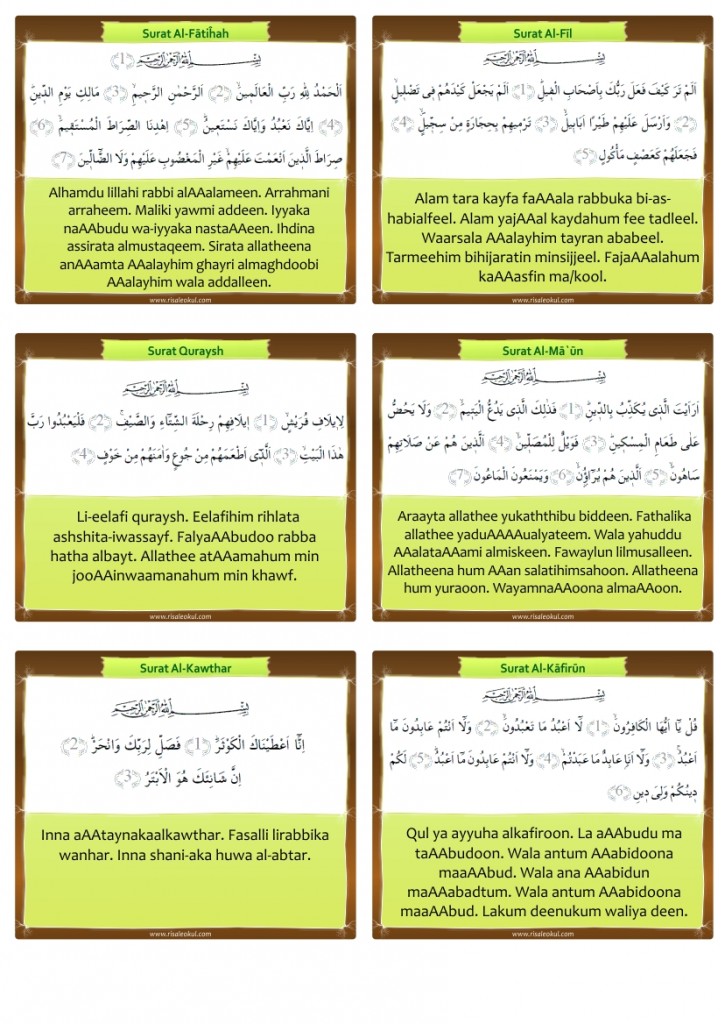 Surat Al-Fātiĥah
بِسْمِ اللّٰهِ الرَّحْمٰنِ الرَّحِيمِ ﴿1﴾
اَلْحَمْدُ لِلّٰهِ رَبِّ الْعَالَمِينَۙ ﴿2﴾ اَلرَّحْمٰنِ الرَّحِيمِۙ ﴿3﴾ مَالِكِ يَوْمِ الدِّينِۜ
﴿4﴾ اِيَّاكَ نَعْبُدُ وَاِيَّاكَ نَسْتَعِينُۜ ﴿5﴾ اِهْدِنَا الصِّرَاطَ الْمُسْتَقِيمَۙ ﴿6﴾
صِرَاطَ الَّذِينَ اَنْعَمْتَ عَلَيْهِمْۙ غَيْرِ الْمَغْضُوبِ عَلَيْهِمْ وَلَا الضَّٓالِّينَ ﴿7﴾
Alhamdu lillahi rabbi alAAalameen. Arrahmani
arraheem. Maliki yawmi addeen. Iyyaka
naAAbudu wa-iyyaka nastaAAeen. Ihdina
assirata almustaqeem. Sirata allatheena
anAAamta AAalayhim ghayri almaghdoobi
AAalayhim wala addalleen.
www.risaleokul.com
Surat Al-Fīl
بِسْمِ اللّٰهِ الرَّحْمٰنِ الرَّحِيمِ
اَلَمْ تَرَ كَيْفَ فَعَلَ رَبُّكَ بِاَصْحَابِ الْفِيلِۜ ﴿1﴾ اَلَمْ يَجْعَلْ كَيْدَهُمْ فِى تَضْلِيلٍۙ
﴿2﴾ وَاَرْسَلَ عَلَيْهِمْ طَيْرًا اَبَابِيلَۙ ﴿3﴾ تَرْمِيهِمْ بِحِجَارَةٍ مِنْ سِجِّيلٍۙ ﴿4﴾
فَجَعَلَهُمْ كَعَصْفٍ مَأْكُولٍ ﴿5﴾
Alam tara kayfa faAAala rabbuka bi-as-
habialfeel. Alam yajAAal kaydahum fee tadleel.
Waarsala AAalayhim tayran ababeel.
Tarmeehim bihijaratin minsijjeel. FajaAAalahum
kaAAasfin ma/kool.
www.risaleokul.com
Surat Quraysh
بِسْمِ اللّٰهِ الرَّحْمٰنِ الرَّحِيمِ
لِاِيلَافِ قُرَيْشٍۙ ﴿1﴾ اِيلَافِهِمْ رِحْلَةَ الشِّتَٓاءِ وَالصَّيْفِۚ ﴿2﴾ فَلْيَعْبُدُوا رَبَّ
هٰذَا الْبَيْتِۙ ﴿3﴾ اَلَّذِٓى اَطْعَمَهُمْ مِنْ جُوعٍ وَاٰمَنَهُمْ مِنْ خَوْفٍ ﴿4﴾
Li-eelafi quraysh. Eelafihim rihlata
ashshita-iwassayf. FalyaAAbudoo rabba
hatha albayt. Allathee atAAamahum min
jooAAinwaamanahum min khawf.
www.risaleokul.com
Surat Al-Mā`ūn
بِسْمِ اللّٰهِ الرَّحْمٰنِ الرَّحِيمِ
اَرَاَيْتَ الَّذِى يُكَذِّبُ بِالدِّينِۜ ﴿1﴾ فَذٰلِكَ الَّذِى يَدُعُّ الْيَتِيمَۙ ﴿2﴾ وَلَا يَحُضُّ
عَلٰى طَعَامِ الْمِسْكِينِۜ ﴿3﴾ فَوَيْلٌ لِلْمُصَلِّينَۙ ﴿4﴾ اَلَّذِينَ هُمْ عَنْ صَلَاتِهِمْ
سَاهُونَۙ ﴿5﴾ اَلَّذِينَ هُمْ يُرَٓاؤُ۫نَۙ ﴿6﴾ وَيَمْنَعُونَ الْمَاعُونَ ﴿7﴾
Araayta allathee yukaththibu biddeen. Fathalika
allathee yaduAAAAualyateem. Wala yahuddu
AAalataAAami almiskeen. Fawaylun lilmusalleen.
Allatheena hum AAan salatihimsahoon. Allatheena
hum yuraoon. WayamnaAAoona almaAAoon.
www.risaleokul.com
Surat Al-Kawthar
بِسْمِ اللّٰهِ الرَّحْمٰنِ الرَّحِيمِ
اِنَّٓا اَعْطَيْنَاكَ الْكَوْثَرَۜ ﴿1﴾ فَصَلِّ لِرَبِّكَ وَانْحَرْۜ ﴿2﴾
اِنَّ شَانِئَكَ هُوَ الْاَبْتَرُ ﴿3﴾
Inna aAAtaynakaalkawthar. Fasalli lirabbika
wanhar. Inna shani-aka huwa al-abtar.
www.risaleokul.com
Surat Al-Kāfirūn
بِسْمِ اللّٰهِ الرَّحْمٰنِ الرَّحِيمِ
قُلْ يَٓا اَيُّهَا الْكَافِرُونَۙ ﴿1﴾ لَٓا اَعْبُدُ مَا تَعْبُدُونَۙ ﴿2﴾ وَلَٓا اَنْتُمْ عَابِدُونَ مَٓا
اَعْبُدُۚ ﴿3﴾ وَلَٓا اَنَا۬ عَابِدٌ مَا عَبَدْتُمْۙ ﴿4﴾ وَلَٓا اَنْتُمْ عَابِدُونَ مَٓا اَعْبُدُۜ ﴿5﴾ لَكُمْ
دِينُكُمْ وَلِىَ دِينِ ﴿6﴾
Qul ya ayyuha alkafiroon. La aAAbudu ma
taAAbudoon. Wala antum AAabidoona
maaAAbud. Wala ana AAabidun
maAAabadtum. Wala antum AAabidoona
maaAAbud. Lakum deenukum waliya deen.
www.risaleokul.com